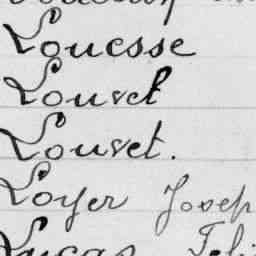 Louesse
Louvel
Louvet.
Loyer Josep
Lucas Feli